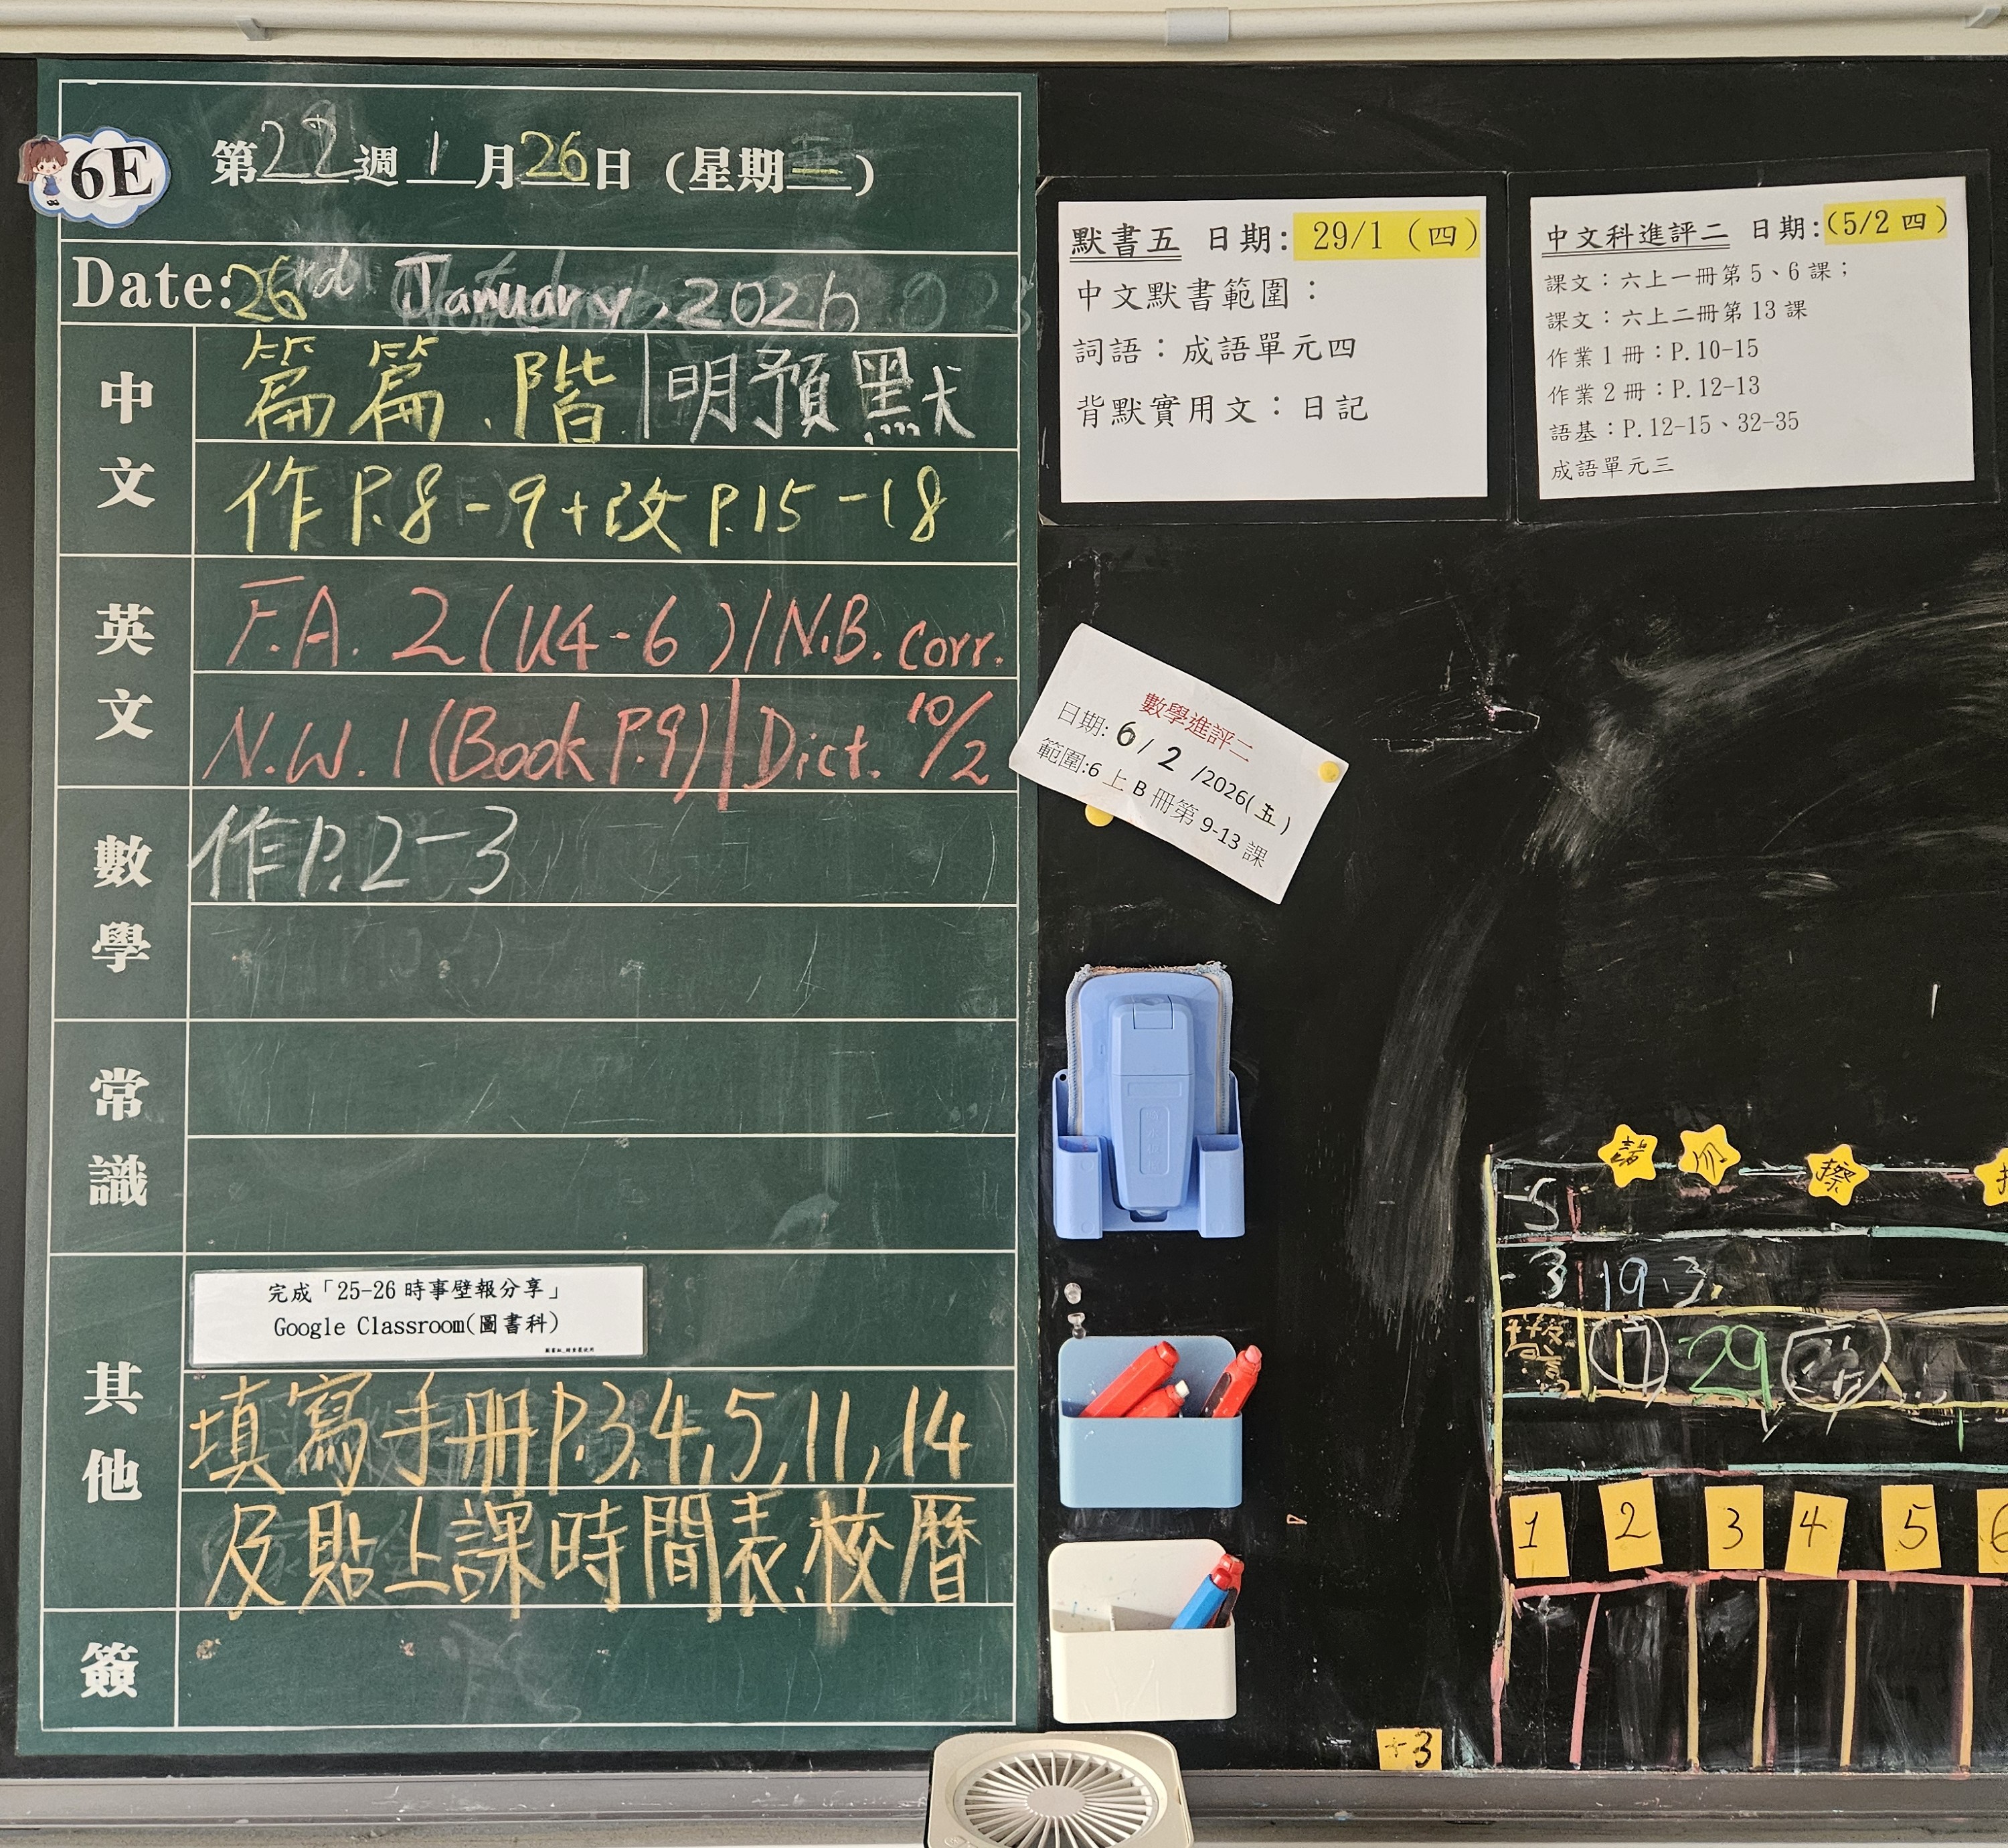 6E
第22週 1月26日（星期二）
Date: 26rd January, 2026
中文
篇篇、階|明預默
作P.8-9+改P.15-18
英文
F.A. 2(U4-6)/N.B. corr.
N.W.1(Book P.9)|Dict. 10/2
數學
作P.2-3
常識
其他
完成「25-26 時事壁報分享」
Google Classroom(圖書科)
填寫手冊P.3,4,5,11,14
及貼上課時間表、校曆
簽
默書五 日期: 29/1（四）
中文默書範圍：
詞語：成語單元四
背默實用文：日記
中文科進評二 日期:(5/2 四)
課文：六上一冊第 5、6 課；
課文：六上二冊第 13 課
作業 1 冊：P.10-15
作業 2 冊：P.12-13
語基：P.12-15、32-35
成語單元三
數學進評二
日期: 6/2/2026(五)
範圍:6上B冊第 9-13 課
擦
-5
-3 19.3,
17 29
1 2 3 4 5 6
+3